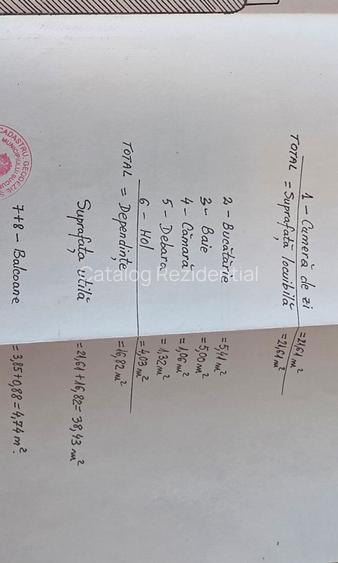 1 - Cameră de zi = 21,61 m²
TOTAL = Suprafață locuibilă = 21,61 m²
2 - Bucătărie = 5,41 m²
3 - Baie = 5,00 m²
4 - Cămară = 1,06 m²
5 - Debara = 1,32 m²
6 - Hol = 4,03 m²
TOTAL = Dependințe = 16,82 m²
Suprafața utilă = 21,61 + 16,82 = 38,43 m²
7+8 - Balcoane = 3,85 + 0,88 = 4,74 m².
Catalog Rezidential